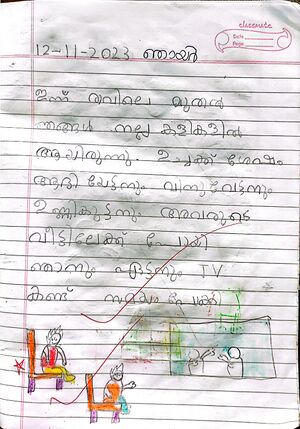 classmate
Date
Page
12-11-2023 ഞായർ
ഇന്ന് രാവിലെ മുതൽ
ഞങ്ങൾ നല്ല കളികളിൽ
ആയിരുന്നു. ഉച്ചക്ക് ശേഷം
ആദി ഏട്ടനും വിനുവേട്ടനും
ഉണ്ണികുട്ടനും അവരുടെ
വീട്ടിലേക്ക് പോയി
ഞാനും ഏട്ടനും TV
കണ്ട് സമയം പോക്കി